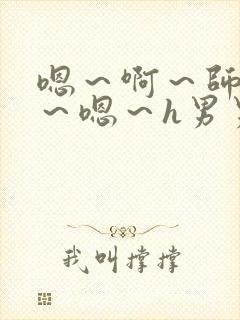 嗯～啊～師
～嗯～h男
我叫撑撑